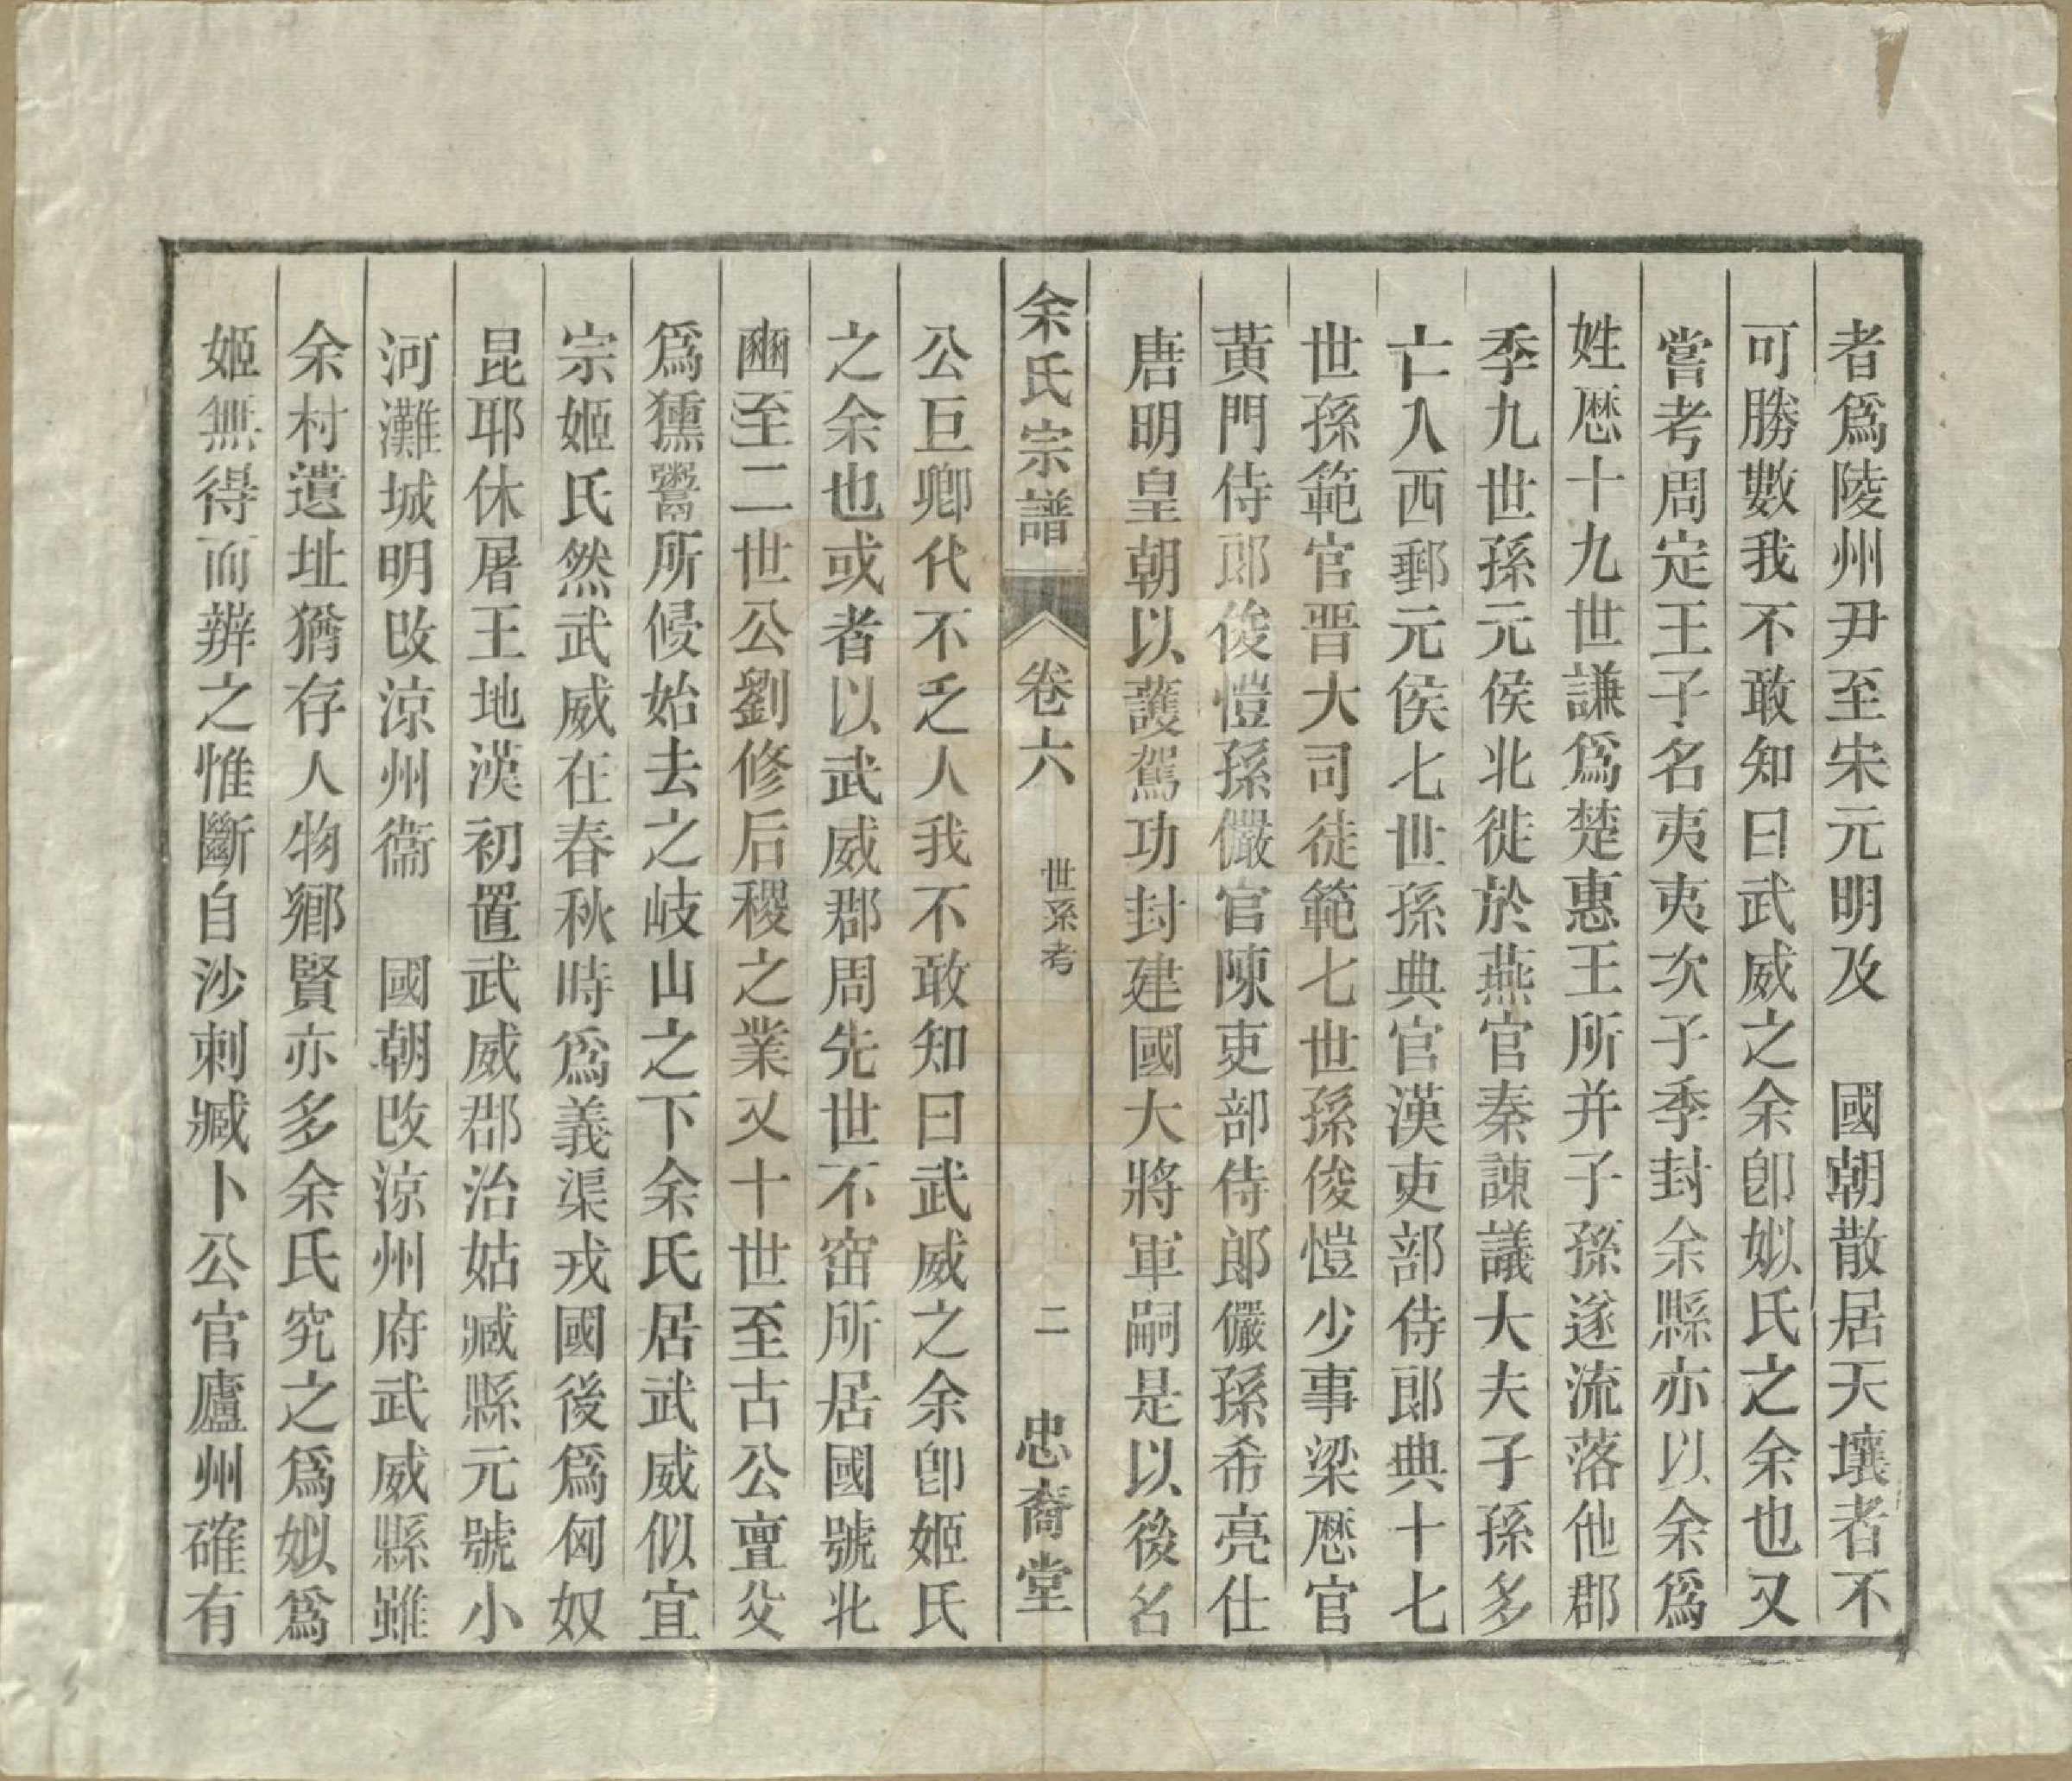 者爲陵州尹至宋元明及　國朝散居天壤者不
可勝數我不敢知曰武威之余卽姒氏之余也又
嘗考周定王子名夷夷次子季封余縣亦以余爲
姓厯十九世謙爲楚惠王所并子孫遂流落他郡
季九世孫元侯北徙於燕官秦諫議大夫子孫多
亡入西郵元侯七世孫典官漢吏部侍郎典十七
世孫範官晋大司徒範七世孫俊愷少事梁厯官
黃門侍郎俊愷孫儼官陳吏部侍郎儼孫希亮仕
唐明皇朝以護駕功封建國大將軍嗣是以後名
余氏宗譜　卷六　世系考　二　忠裔堂
公巨卿代不乏人我不敢知曰武威之余卽姬氏
之余也或者以武威郡周先世不窋所居國號北
豳至二世公劉修后稷之業又十世至古公亶父
爲獯鬻所侵始去之岐山之下余氏居武威似宜
宗姬氏然武威在春秋時爲義渠戎國後爲匈奴
昆耶休屠王地漢初置武威郡治姑臧縣元號小
河灘城明改涼州衞　國朝改涼州府武威縣雖
余村遺址猶存人物鄉賢亦多余氏究之爲姒爲
姬無得而辨之惟斷自沙剌臧卜公官廬州確有